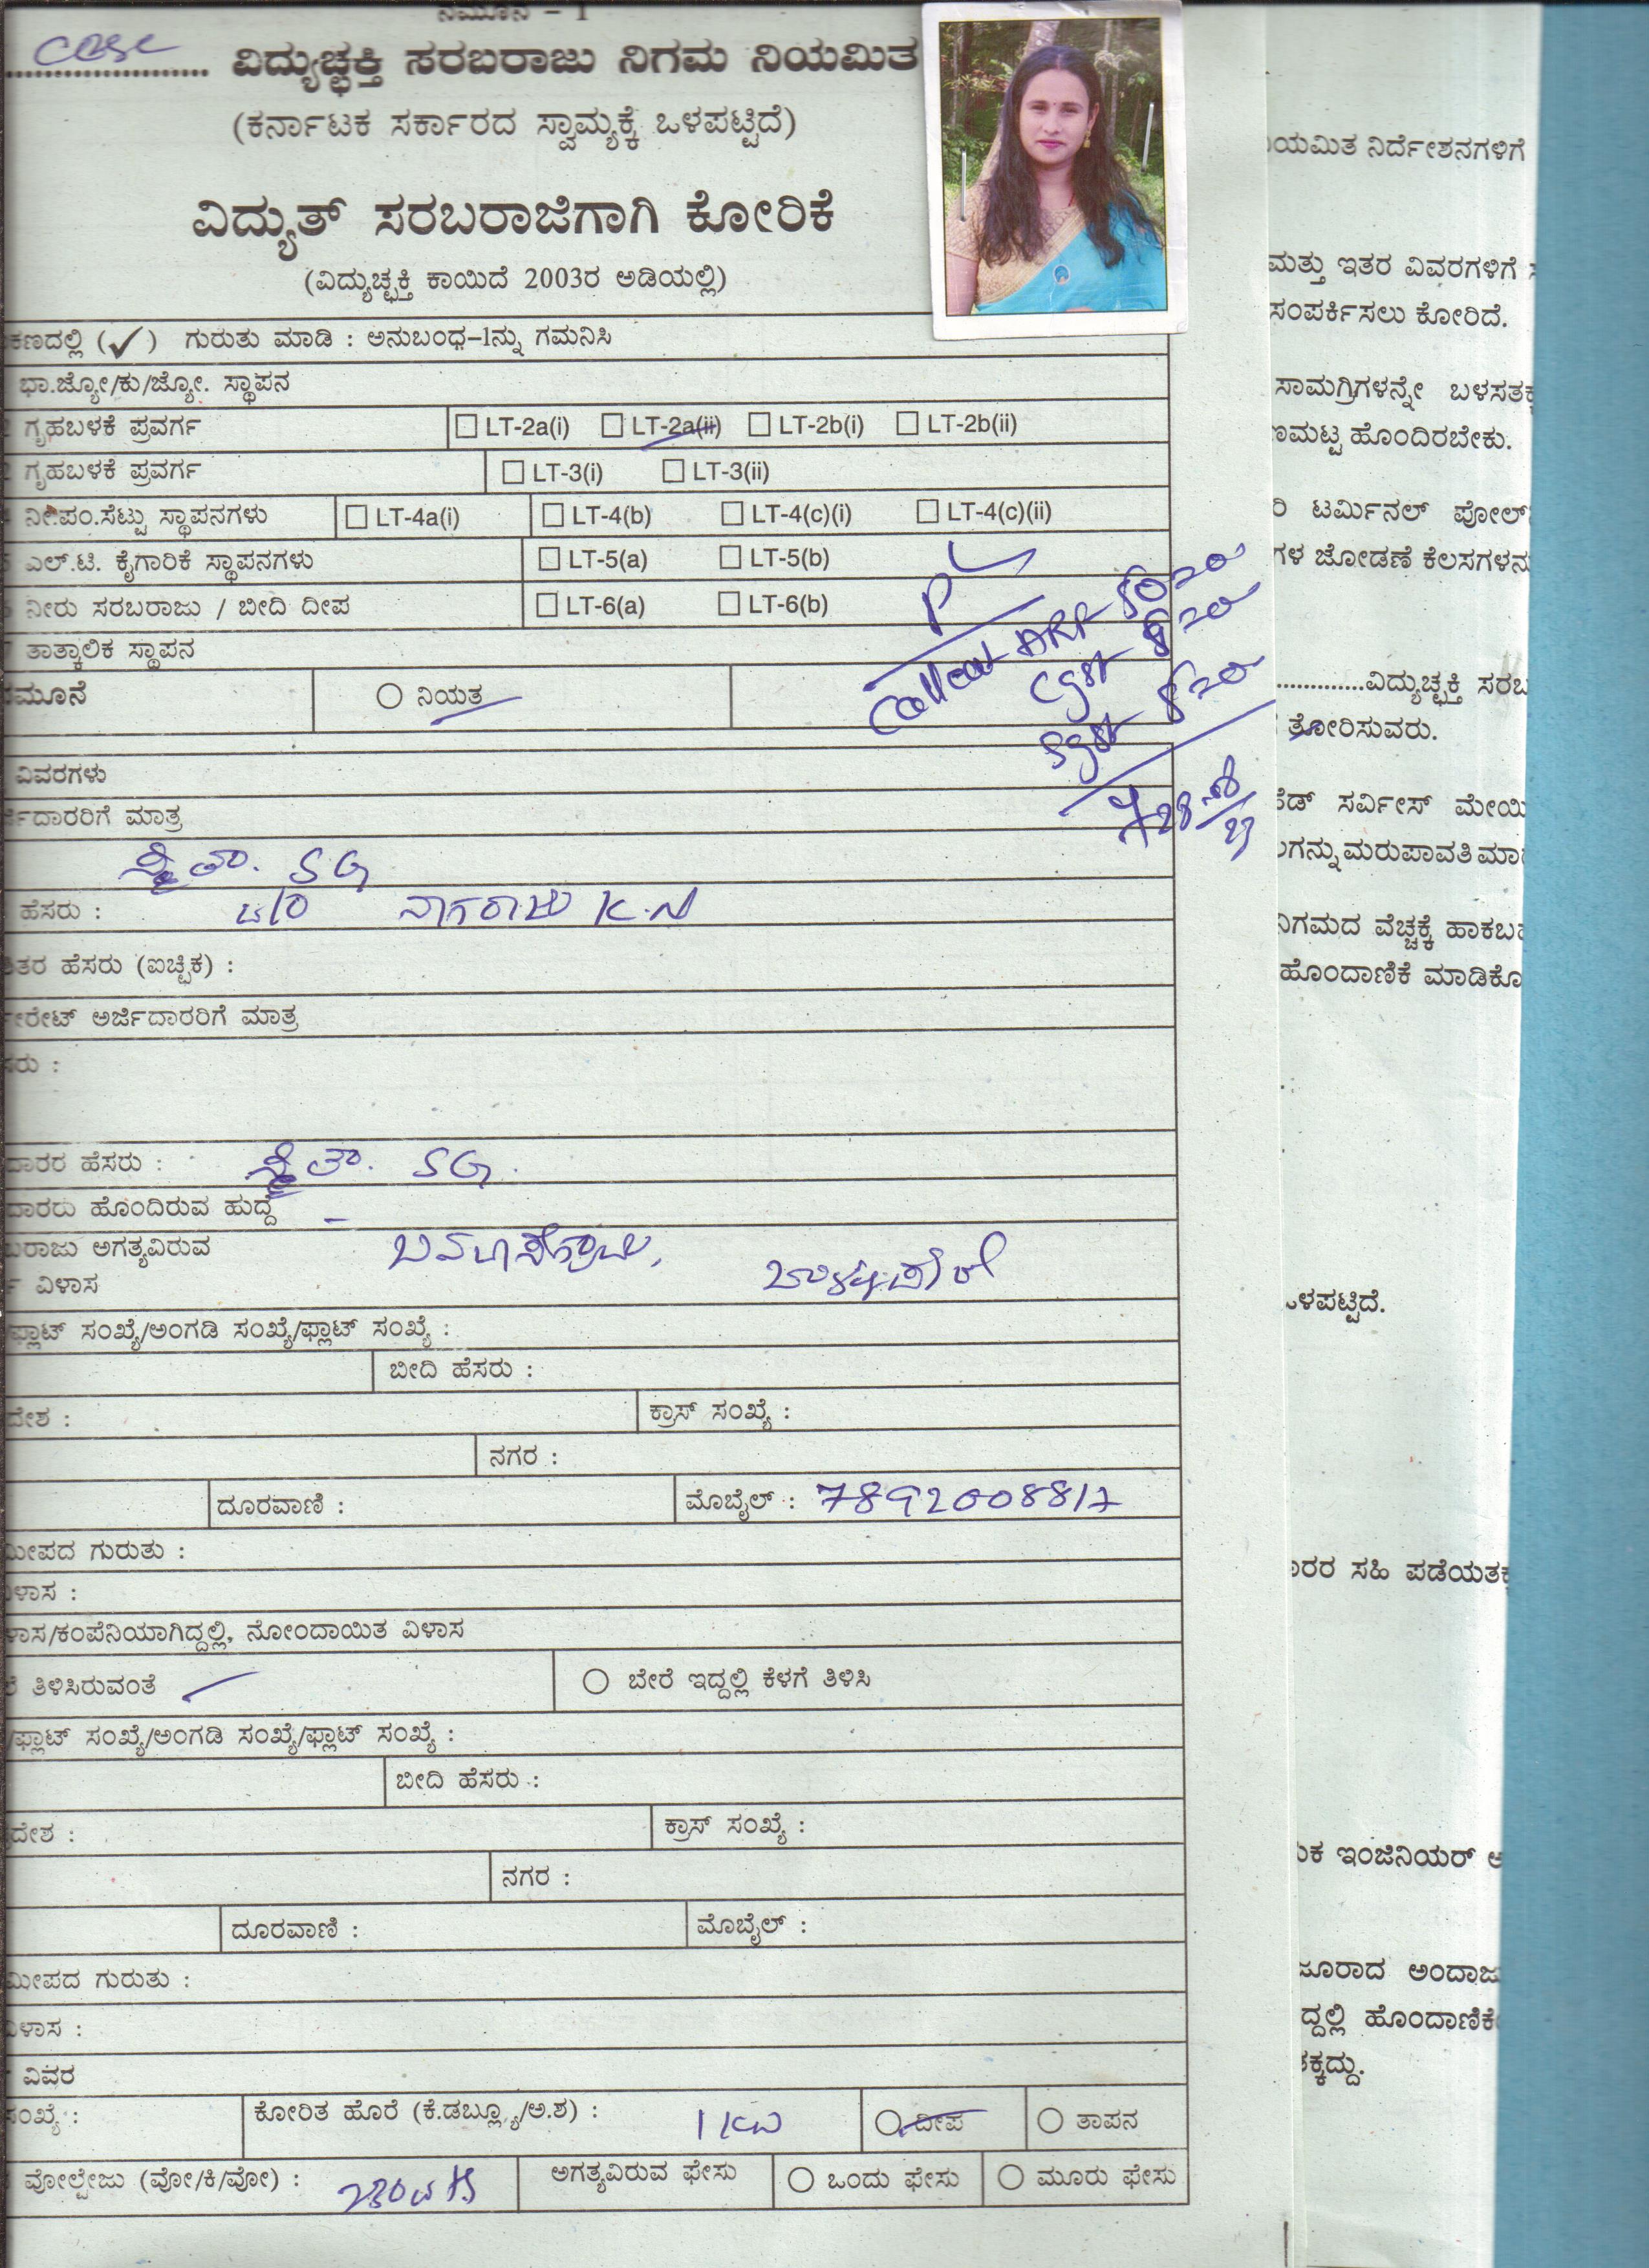 ನಮೂನೆ – 1
CESC ವಿದ್ಯುಚ್ಛಕ್ತಿ ಸರಬರಾಜು ನಿಗಮ ನಿಯಮಿತ
(ಕರ್ನಾಟಕ ಸರ್ಕಾರದ ಸ್ವಾಮ್ಯಕ್ಕೆ ಒಳಪಟ್ಟಿದೆ)
ವಿದ್ಯುತ್ ಸರಬರಾಜಿಗಾಗಿ ಕೋರಿಕೆ
(ವಿದ್ಯುಚ್ಛಕ್ತಿ ಕಾಯಿದೆ 2003ರ ಅಡಿಯಲ್ಲಿ)
ಕಣದಲ್ಲಿ (✓) ಗುರುತು ಮಾಡಿ : ಅನುಬಂಧ–1ನ್ನು ಗಮನಿಸಿ
ಭಾ.ಜ್ಯೋ/ಕು/ಜ್ಯೋ. ಸ್ಥಾಪನ
ಗೃಹಬಳಕೆ ಪ್ರವರ್ಗ LT-2a(i) LT-2a(ii) LT-2b(i) LT-2b(ii)
ಗೃಹಬಳಕೆ ಪ್ರವರ್ಗ LT-3(i) LT-3(ii)
ನೀ.ಪಂ.ಸೆಟ್ಟು ಸ್ಥಾಪನಗಳು LT-4a(i) LT-4(b) LT-4(c)(i) LT-4(c)(ii)
ಎಲ್.ಟಿ. ಕೈಗಾರಿಕೆ ಸ್ಥಾಪನಗಳು LT-5(a) LT-5(b)
ನೀರು ಸರಬರಾಜು / ಬೀದಿ ದೀಪ LT-6(a) LT-6(b)
ತಾತ್ಕಾಲಿಕ ಸ್ಥಾಪನ
ನಮೂನೆ ನಿಯತ
Collect ARF
Cgst
Sgst
ವಿವರಗಳು
ರ್ಜಿದಾರರಿಗೆ ಮಾತ್ರ
SG
ಹೆಸರು : ನಾಗರಾಜು K.N
ತರ ಹೆಸರು (ಐಚ್ಛಿಕ) :
ರೇಟ್ ಅರ್ಜಿದಾರರಿಗೆ ಮಾತ್ರ
ಸರು :
ದಾರರ ಹೆಸರು : SG.
ದಾರರು ಹೊಂದಿರುವ ಹುದ್ದೆ –
ಬರಾಜು ಅಗತ್ಯವಿರುವ
ವಿಳಾಸ
ಫ್ಲಾಟ್ ಸಂಖ್ಯೆ/ಅಂಗಡಿ ಸಂಖ್ಯೆ/ಫ್ಲಾಟ್ ಸಂಖ್ಯೆ :
ಬೀದಿ ಹೆಸರು :
ದೇಶ : ಕ್ರಾಸ್ ಸಂಖ್ಯೆ :
ನಗರ :
ದೂರವಾಣಿ : ಮೊಬೈಲ್ : 7892008817
ಮೀಪದ ಗುರುತು :
ಳಾಸ :
ಳಾಸ/ಕಂಪೆನಿಯಾಗಿದ್ದಲ್ಲಿ, ನೋಂದಾಯಿತ ವಿಳಾಸ
ತಿಳಿಸಿರುವಂತೆ ಬೇರೆ ಇದ್ದಲ್ಲಿ ಕೆಳಗೆ ತಿಳಿಸಿ
/ಫ್ಲಾಟ್ ಸಂಖ್ಯೆ/ಅಂಗಡಿ ಸಂಖ್ಯೆ/ಫ್ಲಾಟ್ ಸಂಖ್ಯೆ :
ಬೀದಿ ಹೆಸರು :
ದೇಶ : ಕ್ರಾಸ್ ಸಂಖ್ಯೆ :
ನಗರ :
ದೂರವಾಣಿ : ಮೊಬೈಲ್ :
ಮೀಪದ ಗುರುತು :
ಳಾಸ :
ವಿವರ
ಸಂಖ್ಯೆ : ಕೋರಿತ ಹೊರೆ (ಕೆ.ಡಬ್ಲ್ಯೂ/ಅ.ಶ) : 1 KW ದೀಪ ತಾಪನ
ವೋಲ್ಟೇಜು (ವೋ/ಕಿ/ವೋ) : ಅಗತ್ಯವಿರುವ ಫೇಸು ಒಂದು ಫೇಸು ಮೂರು ಫೇಸು
ಯಮಿತ ನಿರ್ದೇಶನಗಳಿಗೆ
ಮತ್ತು ಇತರ ವಿವರಗಳಿಗೆ
ಸಂಪರ್ಕಿಸಲು ಕೋರಿದೆ.
ಸಾಮಗ್ರಿಗಳನ್ನೇ ಬಳಸತಕ್ಕ
ಣಮಟ್ಟ ಹೊಂದಿರಬೇಕು.
ರಿ ಟರ್ಮಿನಲ್ ಪೋಲ್
ಗಳ ಜೋಡಣೆ ಕೆಲಸಗಳನು
..............ವಿದ್ಯುಚ್ಛಕ್ತಿ ಸರಬ
ತೋರಿಸುವರು.
ಹೆಡ್ ಸರ್ವೀಸ್ ಮೇಯಿ
ಗನ್ನು ಮರುಪಾವತಿ ಮಾ
ನಿಗಮದ ವೆಚ್ಚಕ್ಕೆ ಹಾಕಬ
ಹೊಂದಾಣಿಕೆ ಮಾಡಿಕೊ
ಒಳಪಟ್ಟಿದೆ.
ದಾರರ ಸಹಿ ಪಡೆಯತಕ್ಕ
ಯಕ ಇಂಜಿನಿಯರ್ ಅ
ಜೂರಾದ ಅಂದಾಜು
ದ್ದಲ್ಲಿ ಹೊಂದಾಣಿಕೆ
ತಕ್ಕದ್ದು.